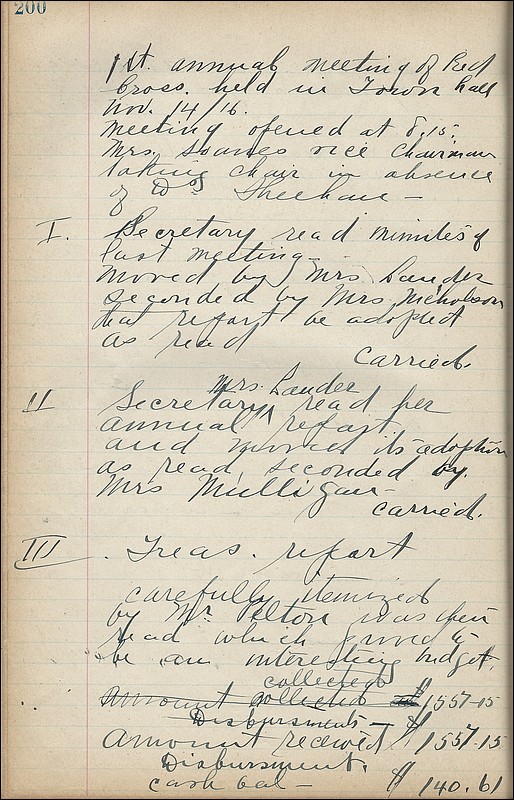 200
1st. annual meeting of Red
Cross. held in Town Hall
Nov. 14/16.
Meeting opened at 8.15.
Mrs. Soanes vice Chairman
taking chair in absence
of Dr Sheehan —
I. Secretary read minutes of
last meeting.
moved by Mrs. Lauder
seconded by Mrs. Nicholson
that report be adopted
as read
Carried.
Mrs. Lauder
II Secretary ^ read her
annual report
and moved its adoption
as read, seconded by.
Mrs Mulligan —
carried.
III . Treas. report
carefully itemized
by Mr. Pelton was then
read which proved to
be an interesting budget.
collected
Amount collected $1557.15
Disbursments — $
Amount received $1557.15
Disbursment.
cash bal — $ 140.61